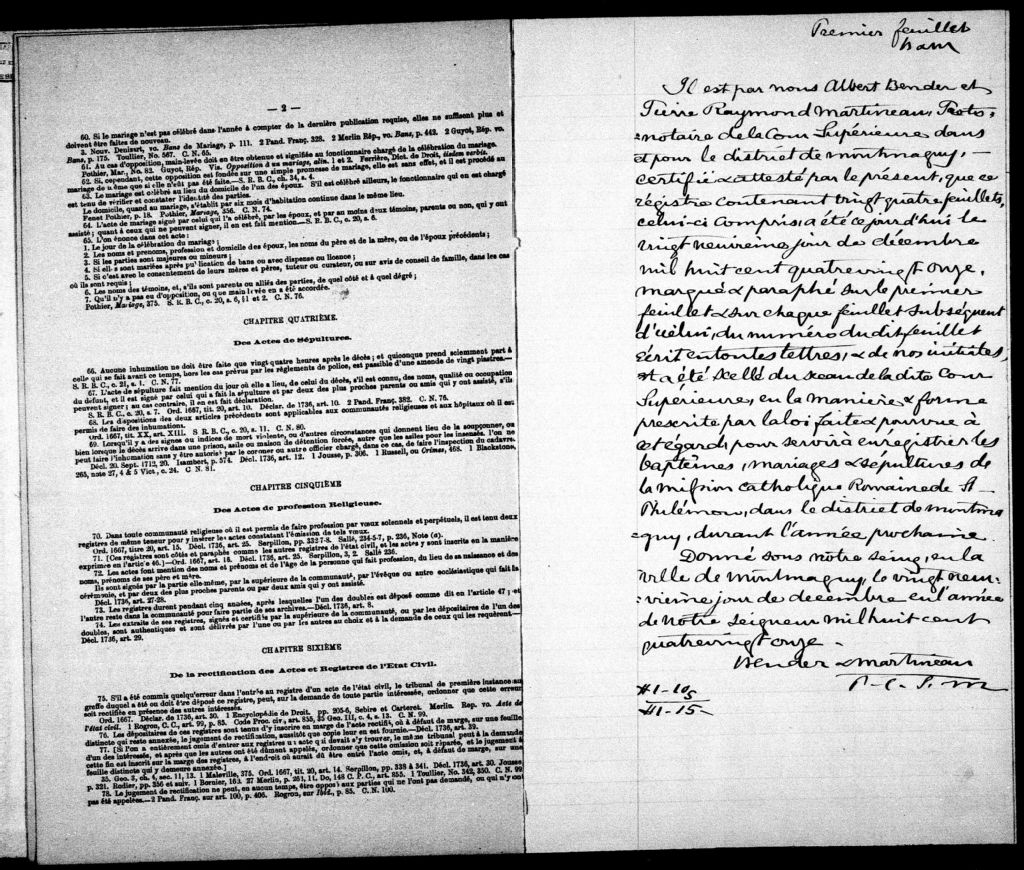 — 2 —
60. Si le mariage n'est pas célébré dans l'année à compter de la dernière publication requise, elle ne suffisent plus et
doivent être faites de nouveau.
3. Nouv. Denisart, vo. Bans de Mariage, p. 111. 2 Pand. Franç. 328. 2 Merlin Rép., vo. Bans, p. 442. 2 Guyot, Rép. vo.
Bans, p. 175. Toullier, No. 567. C. N. 65.
61. Au cas d'opposition, main-levée doit en être obtenue et signifiée au fonctionnaire chargé de la célébration du mariage.
Pothier, Mar., No. 82. Guyot, Rép. Vis. Opposition à un mariage, alin. 1 et 2. Ferrière, Dict. de Droit, iisdem verbis.
62. Si, cependant, cette opposition est fondée sur une simple promesse de mariage, elle est sans effet, et il est procédé au
mariage de même que si elle n'eût pas été faite.—S. R. B. C., ch. 34, s. 4.
63. Le mariage est célébré au lieu du domicile de l'un des époux. S'il est célébré ailleurs, le fonctionnaire qui en est chargé
est tenu de vérifier et constater l'identité des parties.
Le domicile, quand au mariage, s'établit par six mois d'habitation continue dans le même lieu.
Fenet Pothier, p. 18. Pothier, Mariage, 356. C. N. 74.
64. L'acte de mariage signé par celui qui l'a célébré, par les époux, et par au moins deux témoins, parents ou non, qui y ont
assisté; quant à ceux qui ne peuvent signer, il en est fait mention—S. R. B. C., c. 20, s. 6.
65. L'on énonce dans cet acte:
1. Le jour de la célébration du mariage;
2. Les noms et prénoms, profession et domicile des époux, les noms du père et de la mère, ou de l'époux précédents;
3. Si les parties sont majeures ou mineurs;
4. Si elles sont mariées après publication de bans ou avec dispense ou licence;
5. Si c'est avec le consentement de leurs mères et pères, tuteur ou curateur, ou sur avis de conseil de famille, dans les cas
où ils sont requis;
6. Les noms des témoins, et, s'ils sont parents ou alliés des parties, de quel côté et à quel dégré;
7. Qu'il n'y a pas eu d'opposition, ou que main levée en a été accordée.
Pothier, Mariage, 375. S. R. B. C., c. 20, s. 6, §1 et 2. C. N. 76.
CHAPITRE QUATRIÈME.
Des Actes de Sépultures.
66. Aucune inhumation ne doit être faite que vingt-quatre heures après le décès; et quiconque prend sciemment part à
celle qui se fait avant ce temps, hors les cas prévus par les règlements de police, est passible d'une amende de vingt piastres—
S. R. B. C., c. 21, s. 1. C. N. 77.
67. L'acte de sépulture fait mention du jour où elle a lieu, de celui du décès, s'il est connu, des noms, qualité ou occupation
du défunt, et il est signé par celui qui a fait la sépulture et par deux des plus proches parents ou amis qui y ont assisté, s'ils
peuvent signer; au cas contraire, il en est fait déclaration.
S. R. B. C., c. 20, s. 7. Ord. 1667, tit. 20, art. 10. Déclar. de 1736, art. 10. 2 Pand. Franç. 382. C. N. 76.
68. Les dispositions des deux articles précédents sont applicables aux communautés religieuses et aux hôpitaux où il est
permis de faire des inhumations.
Ord. 1667, tit. XX, art. XIII. S. R. B. C., c. 20, s. 11. C. N. 80.
69. Lorsqu'il y a des signes ou indices de mort violente, ou d'autres circonstances qui donnent lieu de la soupçonner, ou
bien lorsque le décès arrive dans une prison, asile ou maison de détention forcée, autre que les asiles pour les insensés, l'on ne
peut faire l'inhumation sans y être autorisé par le coroner ou autre officier chargé, dans ce cas, de faire l'inspection du cadavre.
Décl. 20. Sept. 1712, 20. Isambert, p. 574. Décl. 1736, art. 12. 1 Jousse, p. 306. 1 Russell, ou Crimes, 468. 1 Blackstone,
265, note 27, 4 & 5 Vict., c. 24. C N. 81.
CHAPITRE CINQUIÈME
Des Actes de profession Religieuse.
70. Dans toute communauté religieuse où il est permis de faire profession par vœux solennels et perpétuels, il est tenu deux
registres de même teneur pour y insérer les actes constatant l'émission de tels vœux.
Ord. 1667, titre 20, art. 15. Décl. 1736, art. 25. Serpillon, pp. 337-8. Sallé, 234-5-7, p. 236, Note (a).
71. [Ces registres sont côtés et paraphés comme les autres registres de l'état civil, et les actes y sont inscrits en la manière
exprimée en l'article 46.]—Ord. 1667, art. 16. Décl. 1736, art. 25. Serpillon, 3, 2. Sallé 236.
72. Les actes font mention des noms et prénoms et de l'âge de la personne qui fait profession, du lieu de sa naissance et des
noms, prénoms de ses père et mère.
Ils sont signés par la partie elle-même, par la supérieure de la communauté, par l'évêque ou autre ecclésiastique qui fait la
cérémonie, et par deux des plus proches parents ou par deux amis qui y ont assisté.
Décl. 1736, art. 27-28.
73. Les registres durent pendant cinq années, après lesquelles l'un des doubles est déposé comme dit en l'article 47; et
l'autre reste dans la communauté pour faire partie de ses archives.—Décl. 1736, art. 8.
74. Les extraits de ses registres, signés et certifiés par la supérieure de la communauté, ou par les dépositaires de l'un des
doubles, sont authentiques et sont délivrés par l'une ou par les autres au choix et à la demande de ceux qui les requèrent—
Décl. 1736, art. 29.
CHAPITRE SIXIÈME
De la rectification des Actes et Registres de l'Etat Civil.
75. S'il a été commis quelqu'erreur dans l'entrée au registre d'un acte de l'état civil, le tribunal de première instance au
greffe duquel a été ou doit être déposé ce registre, peut, sur la demande de toute partie intéressée, ordonner que cette erreur
soit rectifiée en présence des autres intéressés.
Ord. 1667. Déclar. de 1736, art. 30. 1 Encyclopédie de Droit. pp. 205-6, Sebire et Carteret. Merlin. Rep. vo. Acte de
l'état civil. 1 Rogron, C. C., art. 99, p. 83. Code Proc. civ., art. 855, 35 Geo. III, c. 4, s. 13. C. N. 99.
76. Les dépositaires de ces registres sont tenus d'y inscrire en marge de l'acte rectifié, où à défaut de marge, sur une feuille
distincte qui reste annexée, le jugement de rectification, aussitôt que copie leur en est fournie.—Décl. 1736, art. 39.
77. [Si l'on a entièrement omis d'entrer aux registres un acte qui devait s'y trouver, le même tribunal peut à la demande
d'un des intéressés, et après que les autres ont été dûment appelés, ordonner que cette omission soit réparée, et le jugement à
cette fin est inscrit sur la marge des registres, à l'endroit où aurait dû être entré l'acte omis, et, à défaut de marge, sur une
feuille distincte qui y demeure annexée.]
35. Geo. 3, ch. 4, sec. 11, 13. 1 Maleville, 375. Ord. 1667, tit. 20, art. 14. Serpillon, pp. 338 à 341. Décl. 1736, art. 30. Jousse
p. 321. Rodier, pp. 356 et suiv. 1 Bornier, 163. 27 Merlin, p. 261, 11. Do, 148 C. P. C., art. 855. 1 Toullier, No. 342, 350. C. N. 99.
78. Le jugement de rectification ne peut, en aucun temps, être opposé aux parties qui ne l'ont pas demandé, ou qui n'y ont
pas été appelées.—2 Pand. Franç. sur art. 100, p. 406. Rogron, sur Ibid., p. 85. C. N. 100.
Premier feuillet
Il est par nous Albert Bender et
Pierre Raymond Martineau, Proto-
notaire de la Cour Supérieure dans
et pour le district de Montmagny,
certifié & attesté par le présent, que ce
régistre contenant vingt quatre feuillets,
celui-ci compris, a été ce jourd'hui le
vingt neuvieme jour de décembre
mil huit cent quatrevingt onze,
marqué & paraphé sur le premier
feuillet & sur chaque feuillet subséquent
d'icelui, du numéro du dit feuillet
écrit en toutes lettres, & de nos initiales
et a été scellé du sceau de la dite Cour
Supérieure, en la manière & forme
prescrite par la loi faite & pourvue à
cet égard, pour servir à enregistrer les
baptêmes, mariages & sépultures de
la mission catholique Romaine de St
Philémon, dans le district de Montma
gny, durant l'année prochaine.
Donné sous notre seing, en la
ville de Montmagny, le vingt neu-
vieme jour de décembre en l'année
de Notre Seigneur mil huit cent
quatrevingt onze.
Bender & Martineau
P. C. S. M
#1-10
#1-15-